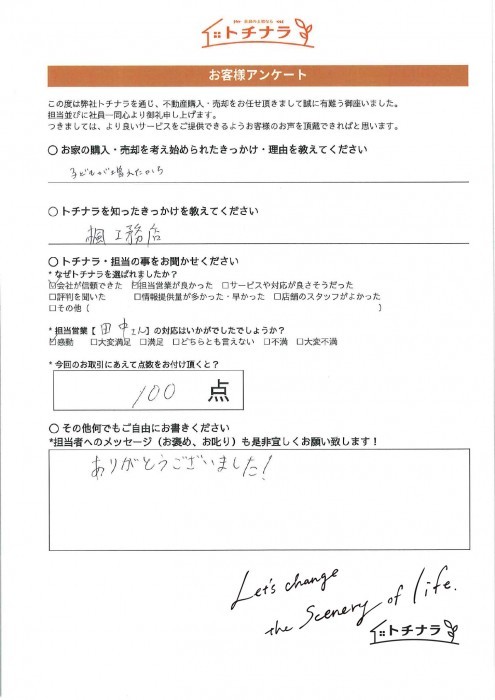 土地のお悩みなら
トチナラ
お客様アンケート
この度は弊社トチナラを通じ、不動産購入・売却をお任せ頂きまして誠に有難う御座いました。
担当並びに社員一同心より御礼申し上げます。
つきましては、より良いサービスをご提供できるようお客様のお声を頂戴できればと思います。
〇 お家の購入・売却を考え始められたきっかけ・理由を教えてください
子どもが増えたから
〇 トチナラを知ったきっかけを教えてください
楓工務店
〇 トチナラ・担当の事をお聞かせください
* なぜトチナラを選ばれましたか？
☑会社が信頼できた ☑担当営業が良かった □サービスや対応が良さそうだった
□評判を聞いた □情報提供量が多かった・早かった □店舗のスタッフがよかった
□その他（ ）
* 担当営業【 田中さん 】の対応はいかがでしたでしょうか？
☑感動 □大変満足 □満足 □どちらとも言えない □不満 □大変不満
* 今回のお取引にあえて点数をお付け頂くと？
100 点
〇 その他何でもご自由にお書きください
*担当者へのメッセージ（お褒め、お叱り）も是非宜しくお願い致します！
ありがとうございました！
Let's change
the Scenery of life.
トチナラ